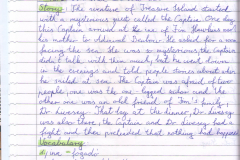 Story: The adventure of Treasure Island started
with a mysterious guest called the Captain. One day
this Captain arrived at the inn of Jim Hawkins and
his mother the Admiral Benbow. He asked for a room
facing the sea. He was so mysterious, the Captain
didn't talk with them much, but he went down
in the evenings and told people stories about when
he sailed at sea. The Captain was afraid of two
people, one was the one-legged sailor and the
other one was an old friend of Jim's family,
Dr Livesey. That day at the dinner, Dr Livesey
was also there, the Captain and Dr Livesey had a
fight and then pretended that nothing had happened
Vocabulary
inn - fogadó